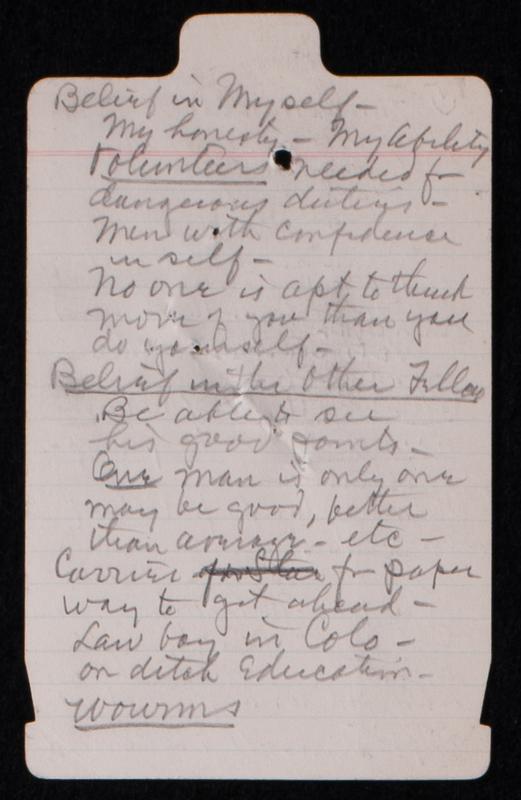 Belief in Myself -
My honesty - My Ability
Volunteers needed for
dangerous duties -
Men with confidence
in self -
No one is apt to think
more of you than you
do yourself -
Belief in the Other Fellow
Be able to see
his good points -
One man is only one
may be good, better
than average - etc -
Carrier for Star for paper
way to get ahead -
Law boy in Colo -
on ditch Education -